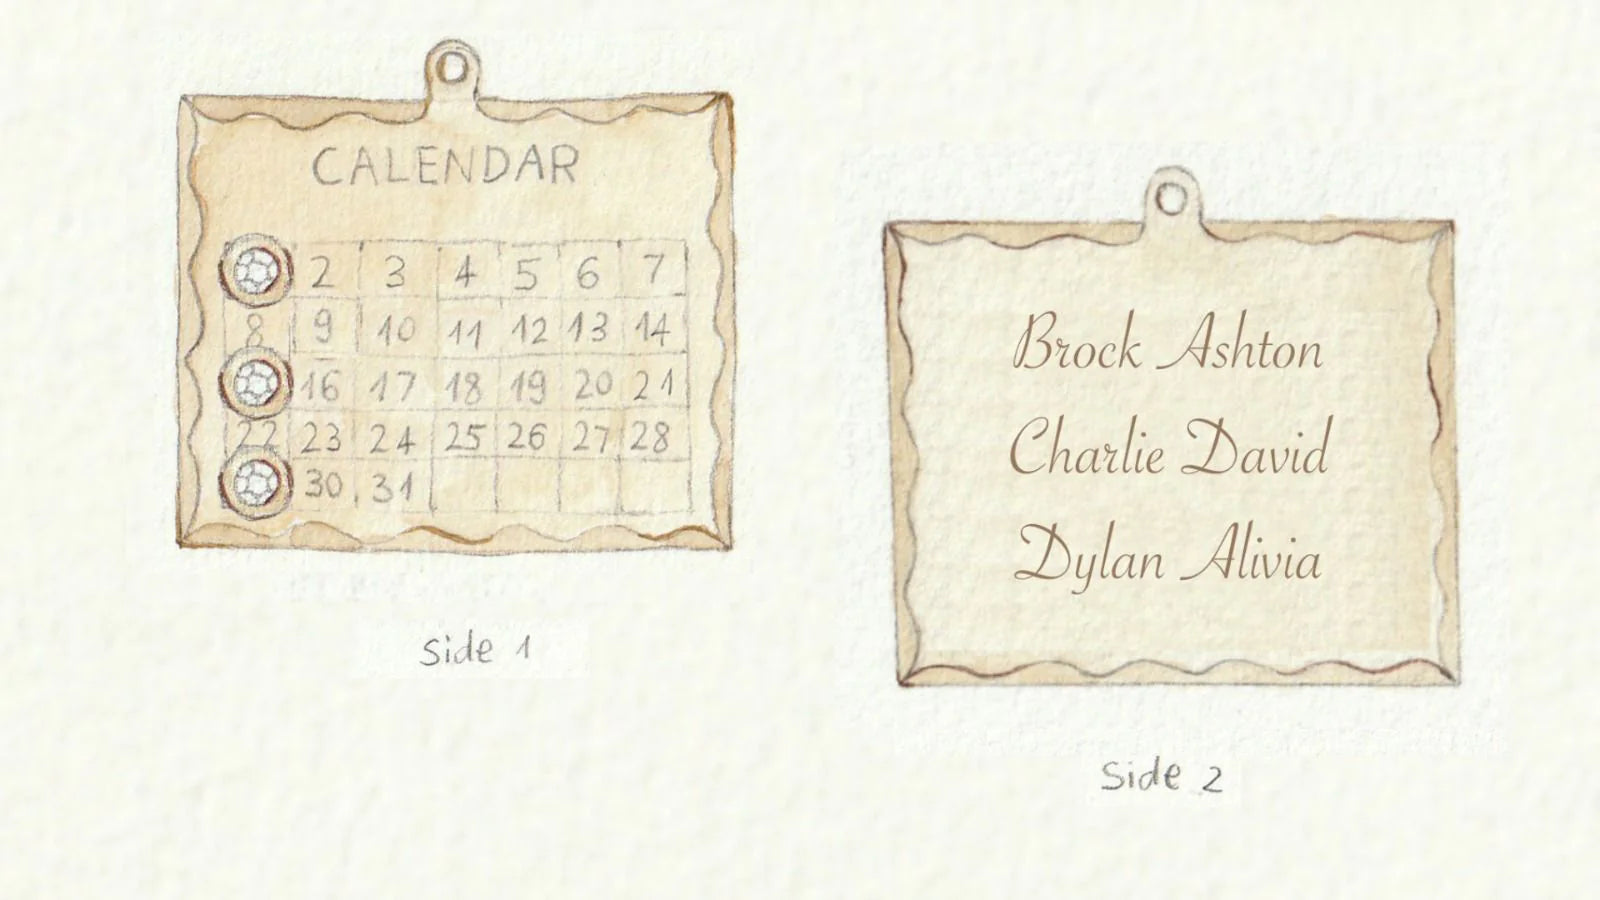 CALENDAR
2 3 4 5 6 7
8 9 10 11 12 13 14
16 17 18 19 20 21
22 23 24 25 26 27 28
30 31
Side 1
Brock Ashton
Charlie David
Dylan Alivia
Side 2